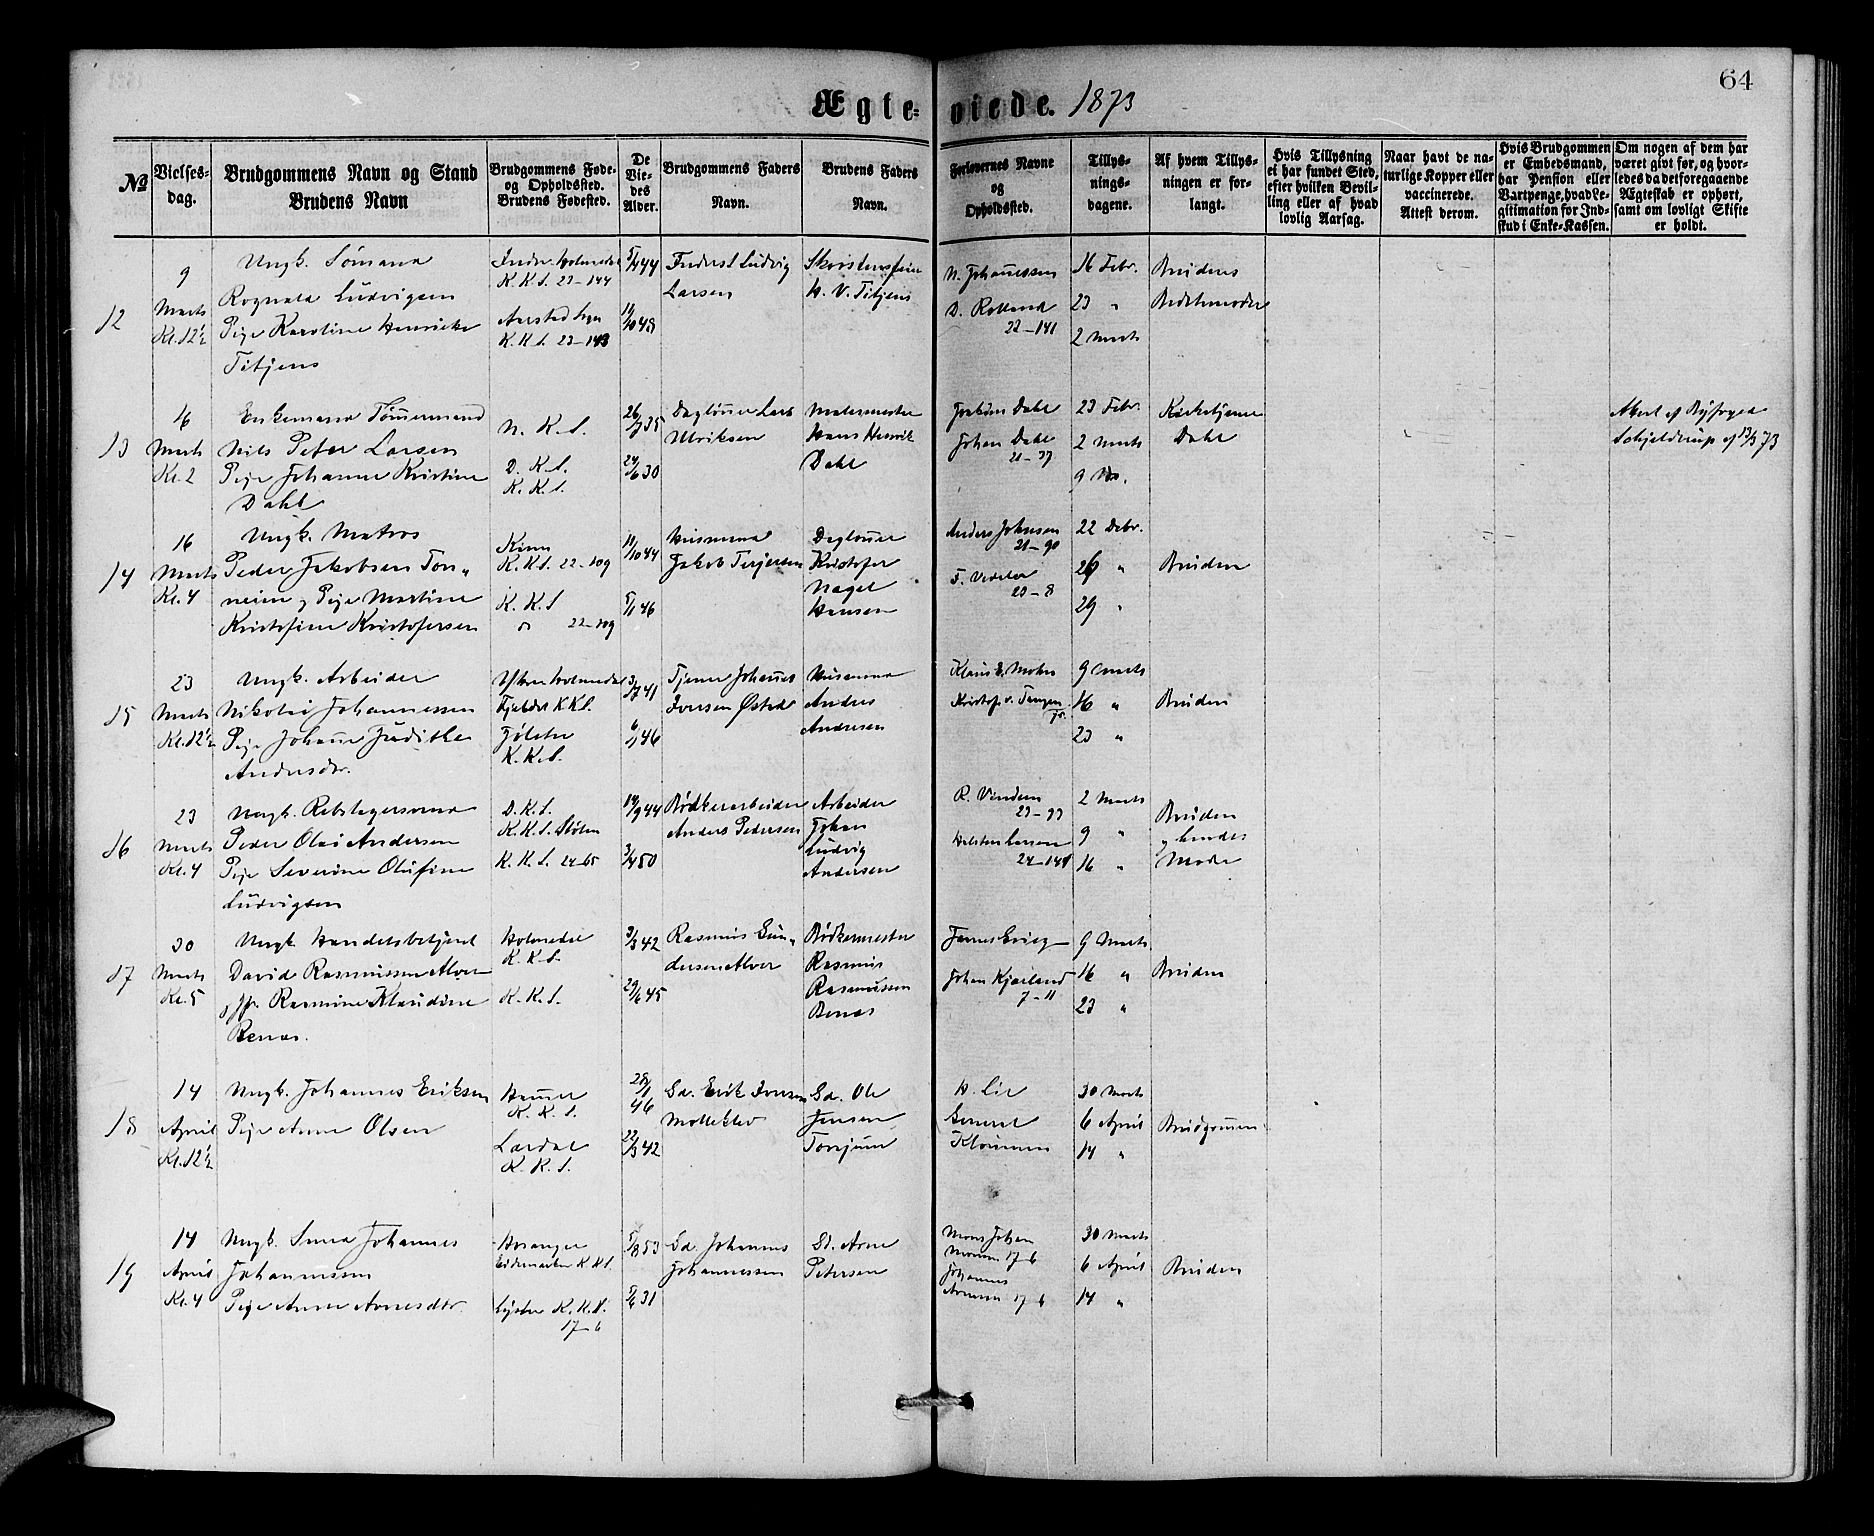 64
Ægte-viede. 1873
No
Vielses-dag.
Brudgommens Navn og Stand
Brudens Navn
Brudgommens Føde- og Opholdssted.
Brudens Fødested.
De Vie-des Alder.
Brudgommens Faders Navn.
Brudens Faders Navn.
Forlovernes Navne og Opholdssted.
Tillys-nings-dagene.
Af hvem Tillys-ningen er for-langt.
Hvis Tillysning ei har fundet Sted, efter hvilken Bevil-ling eller af hvad lovlig Aarsag.
Naar havt de na-turlige Kopper eller vaccinerede. Attest derom.
Hvis Brudgommen er Embedsmand, har Pension eller Vartpenge, hvad Le-gitimation for Ind-skud i Enke-Kassen.
Om nogen af dem har været givt før, og hvor-ledes da det foregaaende Ægteskab er ophørt, samt om lovligt Skifte er holdt.
12
9 Marts Kl. 12½
Ungk. Sømand
Rognald Ludvigsen
Pige Karoline Henrikke
Titjens
Indre Holmedal
K.K.S. 23-144
Aarstad Sogn
K.K.S. 23-143
5/4 44
11/10 48
Ludvig
Larsen
Skorstensfeier
H. V. Titjens
N. Johannessen
D. Rolland
22-141
16 Febr.
23 "
2 Marts
Brudens
Bedstemoder
13
16 Marts Kl. 2
Enkemand Tømmermand
Nils Peter Larsen
Pige Johanne Kristine
Dahl
N. K. S.
D. K. S.
K. K. S.
26/7 35
24/6 30
Dagløner Lars
Ulriksen
Malermester
Hans Henrik
Dahl
Joakim Dahl
Johan Dahl
21-37
23 Febr.
2 Marts
9 Do.
Kirketjener
Dahl
Attest af Byfoged
Schjelderup af 13/3 73
14
16 Marts Kl. 4
Ungk. Matros
Peder Jakobsen Tøn-
neien, Pige Martine
Kristofine Kristofersen
Kinn
K.K.S. 22-109
K. K. S
" 22-109
11/10 44
5/1 46
Husmand
Jakob Terjersen
Dagløner
Kristofer
Nagel
Hansen
Anders Johnsen
21-90
F. Vedeler
23-8
22 Debr.
26 "
29 "
Bruden
15
23 Marts Kl. 12½
Ungk. Arbeider
Nikolai Johannessen
Pige Johanne Judithe
Andersdtr.
Ytre Holmedal
K.K.S.
Jølster
K. K. S.
3/7 41
6/1 46
Tjener Johannes
Iversen
Husmand
Anders
Andersen
Klaus E. Mohn
Kristof. v. Tangen
Jr.
9 Marts
16 "
23 "
Bruden
16
23 Marts Kl. 4
Ungk. Rebslagersvend
Peder Olai Andersen
Pige Severine Olufine
Ludvigsen
D. K. S.
K. K. S. Stølen
K. K. S. 24-65
14/9 44
3/4 50
Bødkerarbeider
Anders Pedersen
Arbeider
Johan
Ludvig
Andersen
R. Vindenes
23-33
Halsten Larsen
24-141
2 Marts
9 "
16 "
Bruden
og hendes
Moder
17
30 Marts Kl. 5
Ungk. Handelsbetjent
David Rasmussen Alver
og Jfr. Rasmine Klaudine
Benas.
Holmedal
K. K. S.
K. K. S.
3/3 42
29/6 45
Rasmus Gun-
dersen Alver
Bødkermester
Rasmus
Rasmussen
Benas
James Grieg
Johan Kjærland
7-11
9 Marts
16 "
23 "
Bruden
18
14 April Kl. 12½
Ungk. Johannes Eriksen
Pige Anne Olsen
Hammer
K. K. S.
Lærdal
K. K. S.
28/1 46
22/3 42
Gd. Erik Iversen
Gd. Ole
Jensen
Torsjum
H. Lie
Klausen
30 Marts
6 April
14 "
Brudgommen
19
14 April Kl. 4
Ungk. Smed Johannes
Johannessen
Pige Anne Arnesdtr.
Hosanger
K.K.S.
Lyster K. K. S.
17-6
5/8 53
5/6 31
Gd. Johannes
Johannessen
Gd. Arne
Petersen
Mons Johan
Monsen 17-6
Johannes
Arnesen 17-6
30 Marts
6 April
14 "
Bruden